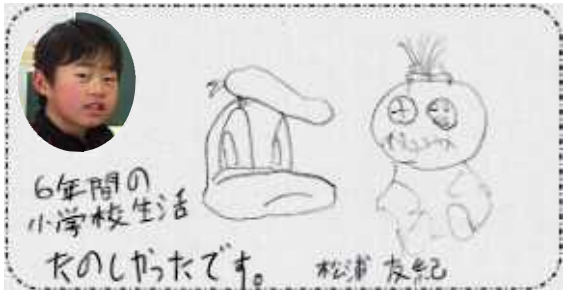 6年間の
小学校生活
たのしかったです。
松浦 友紀